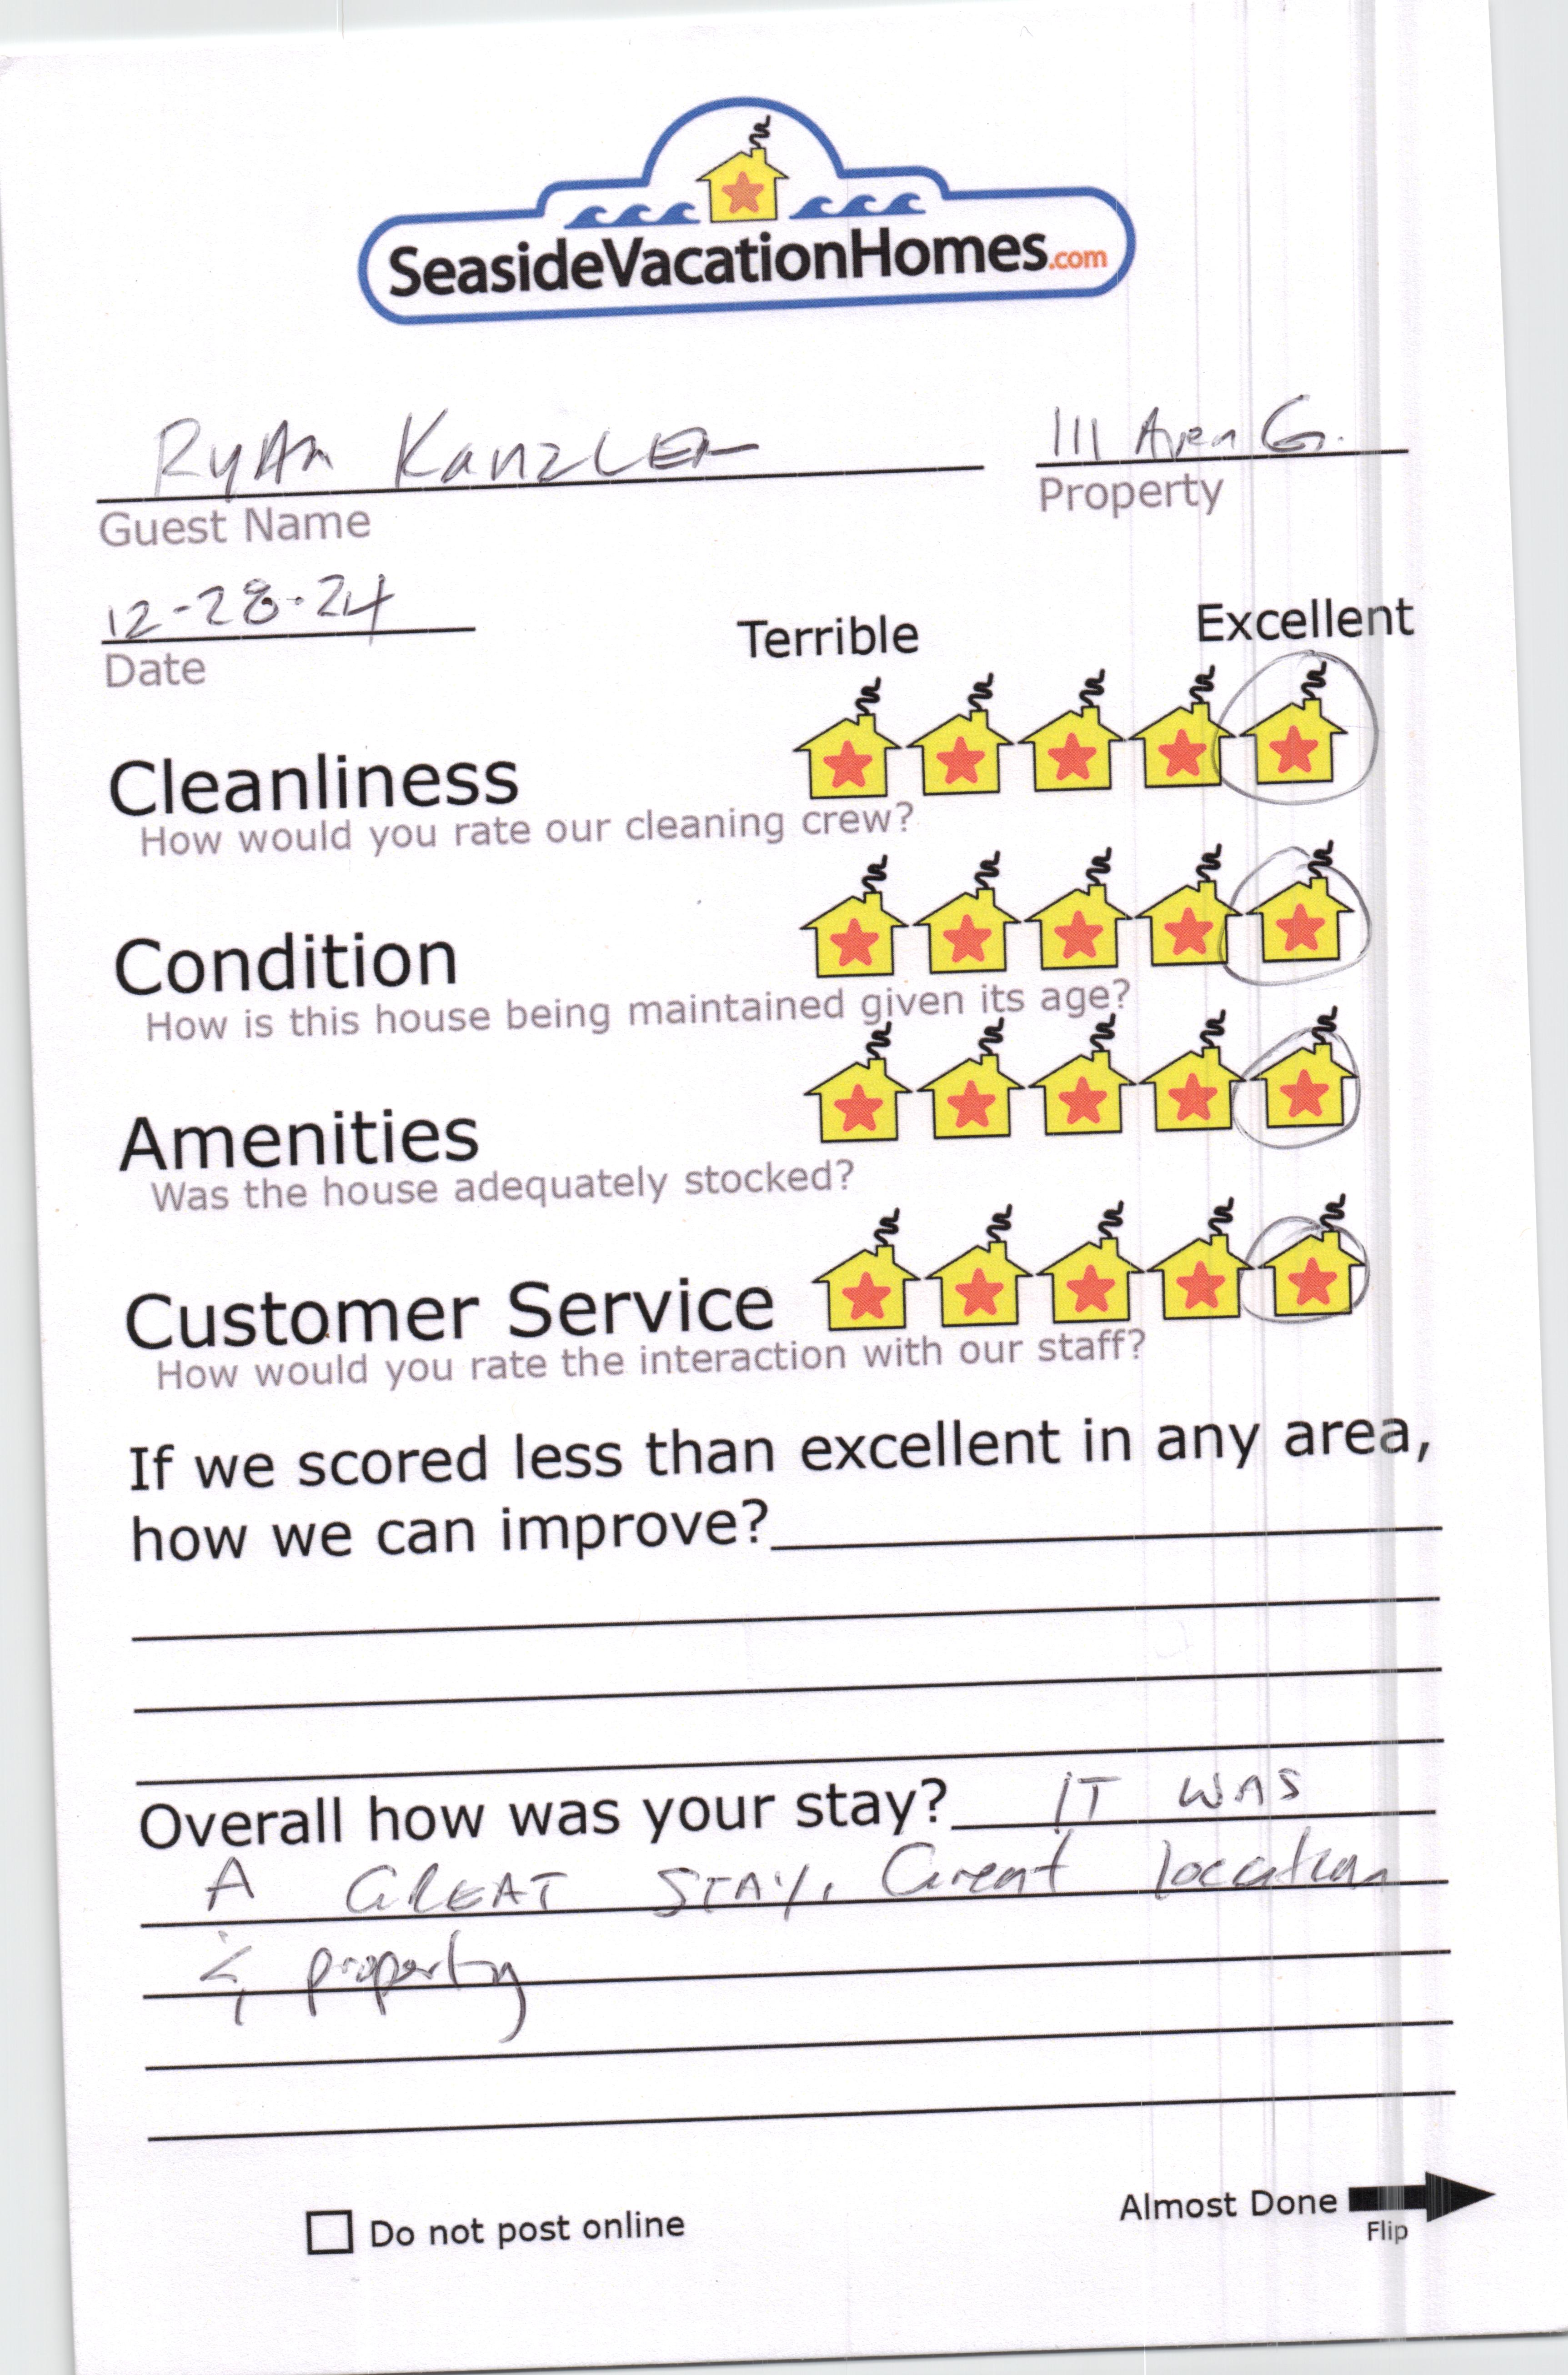 SeasideVacationHomes.com
Ryan Kanzler 111 Aven G.
Guest Name Property
12-28-24
Date
Terrible Excellent
Cleanliness
How would you rate our cleaning crew?
Condition
How is this house being maintained given its age?
Amenities
Was the house adequately stocked?
Customer Service
How would you rate the interaction with our staff?
If we scored less than excellent in any area,
how we can improve?
Overall how was your stay? IT WAS
A GREAT STAY, Great location
& property
Do not post online
Almost Done
Flip